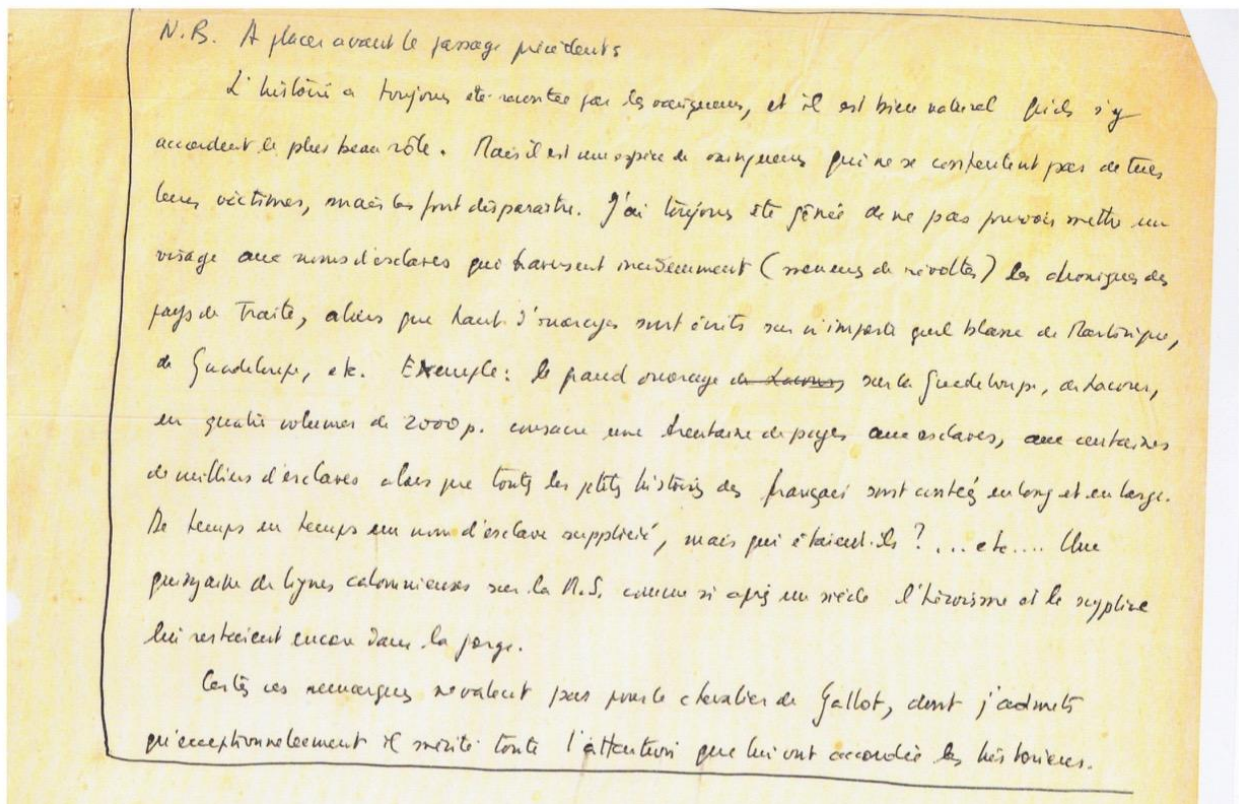 N.B. A placer avant le passage précédents
L'histoire a toujours été racontée par les vainqueurs, et il est bien naturel qu'ils s'y
accordent le plus beau rôle. Mais il est une espèce de vainqueurs qui ne se contentent pas de tuer
leurs victimes, mais les font disparaître. J'ai toujours été gênée de ne pas pouvoir mettre un
visage aux noms d'esclaves qui traversent incidemment (meneurs de révoltes) les chroniques des
pays de Traite, alors que tant d'ouvrages sont écrits sur n'importe quel blanc de Martinique,
de Guadeloupe, etc. Exemple : le grand ouvrage de Lacour, sur la Guadeloupe, de Lacour,
en quatre volumes de 2000 p. consacre une trentaine de pages aux esclaves, aux centaines
de milliers d'esclaves alors que toutes les petites histoires des français sont contées en long et en large.
De temps en temps un nom d'esclave supplicié, mais qui étaient-ils ? ... etc.... Une
quinzaine de lignes calomnieuses sur la M.S. comme si après un siècle l'héroïsme et le supplice
lui restaient encore dans la gorge.
Certes ces remarques ne valent pas pour le chevalier de Gallot, dont j'admets
qu'exceptionnellement il mérite toute l'attention que lui ont accordée les historiens.